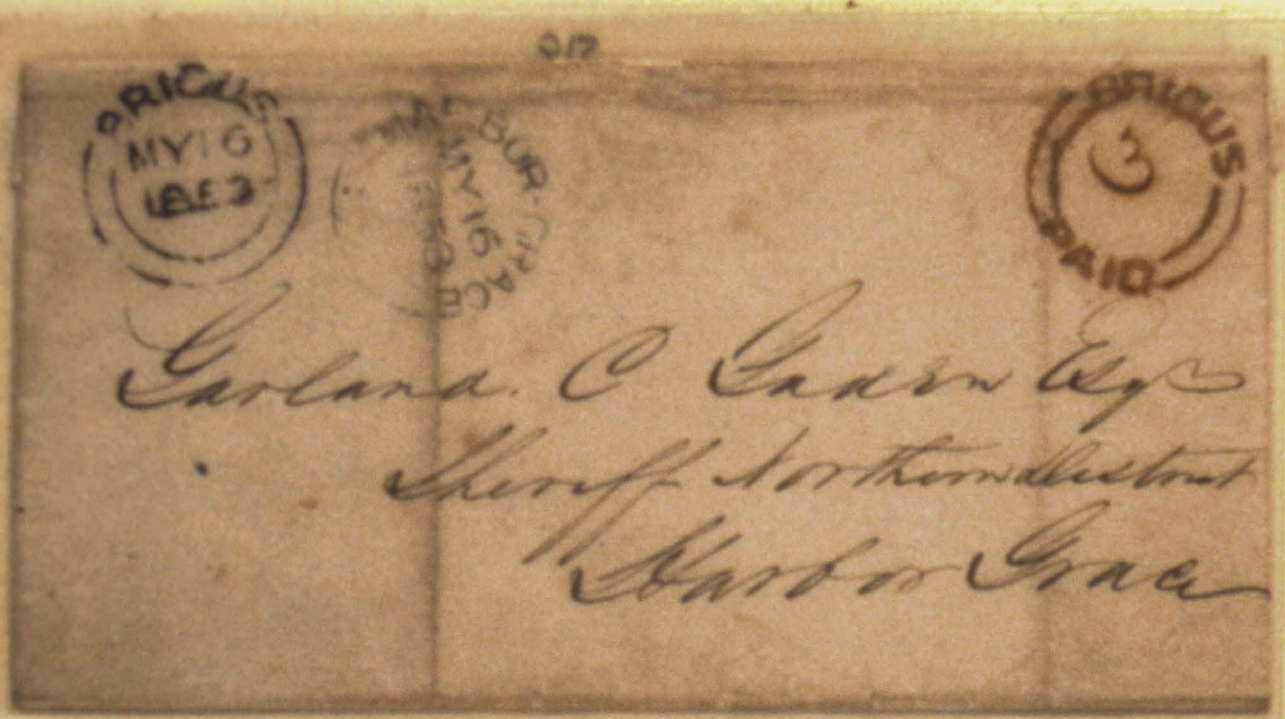 BRIGUS
MY 16
1853
HARBOR GRACE
MY 16
1853
BRIGUS
3
PAID
Garland. C Gaden Esqr
Sheriff Northern District
Harbor Grace